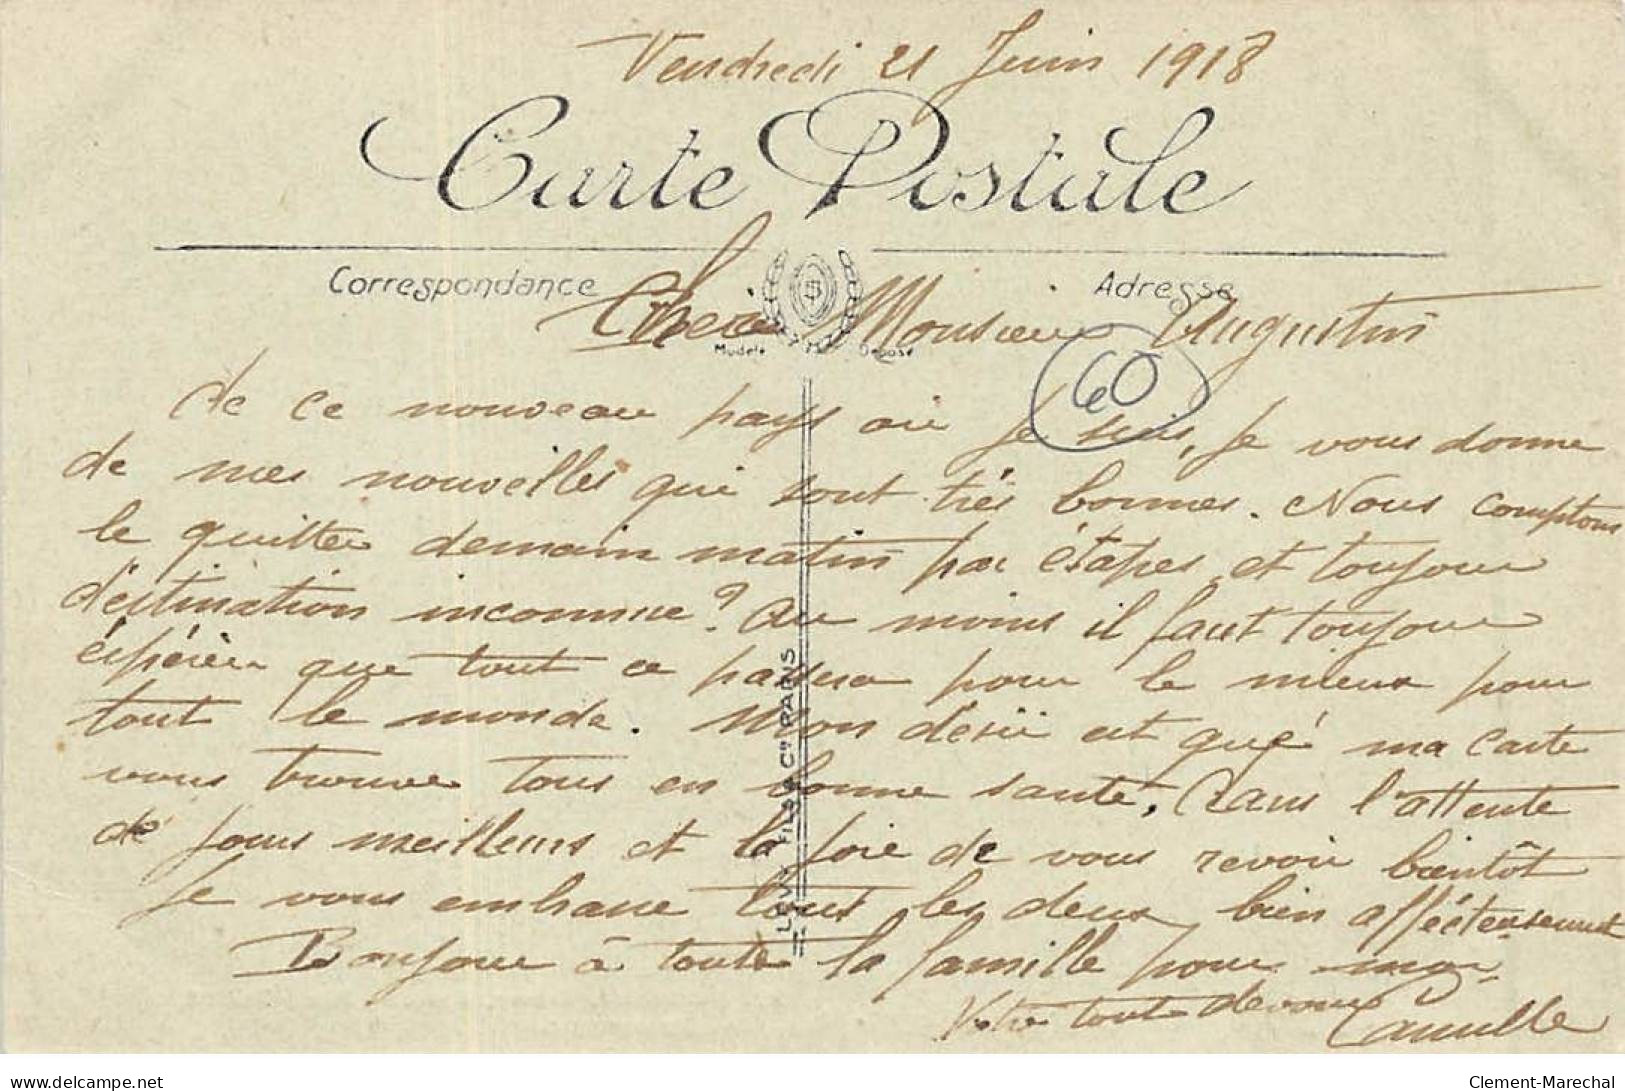 Vendredi 21 Juin 1918
Carte Postale
Correspondance
Adresse
Cher Monsieur Augustin
Modèle Déposé
60
de ce nouveau pays où je suis, je vous donne
de mes nouvelles qui sont très bonnes. Nous comptons
le quitter demain matin par étapes, et toujour
déstination inconnue? au moins il faut toujour
éspérér que tout ce passera pour le mieux pour
tout le monde. Mon désir est que ma carte
vous trouve tous en bonne santé, Dans l'attente
de jours meilleurs et la joie de vous revoir bientôt
Je vous embrasse tout les deux bien afféctueusement
Bonjour à toute la famille pour moi
Votre tout dévoué Camille
LEVY FILS & Cie PARIS
delcampe.net
Clement-Marechal